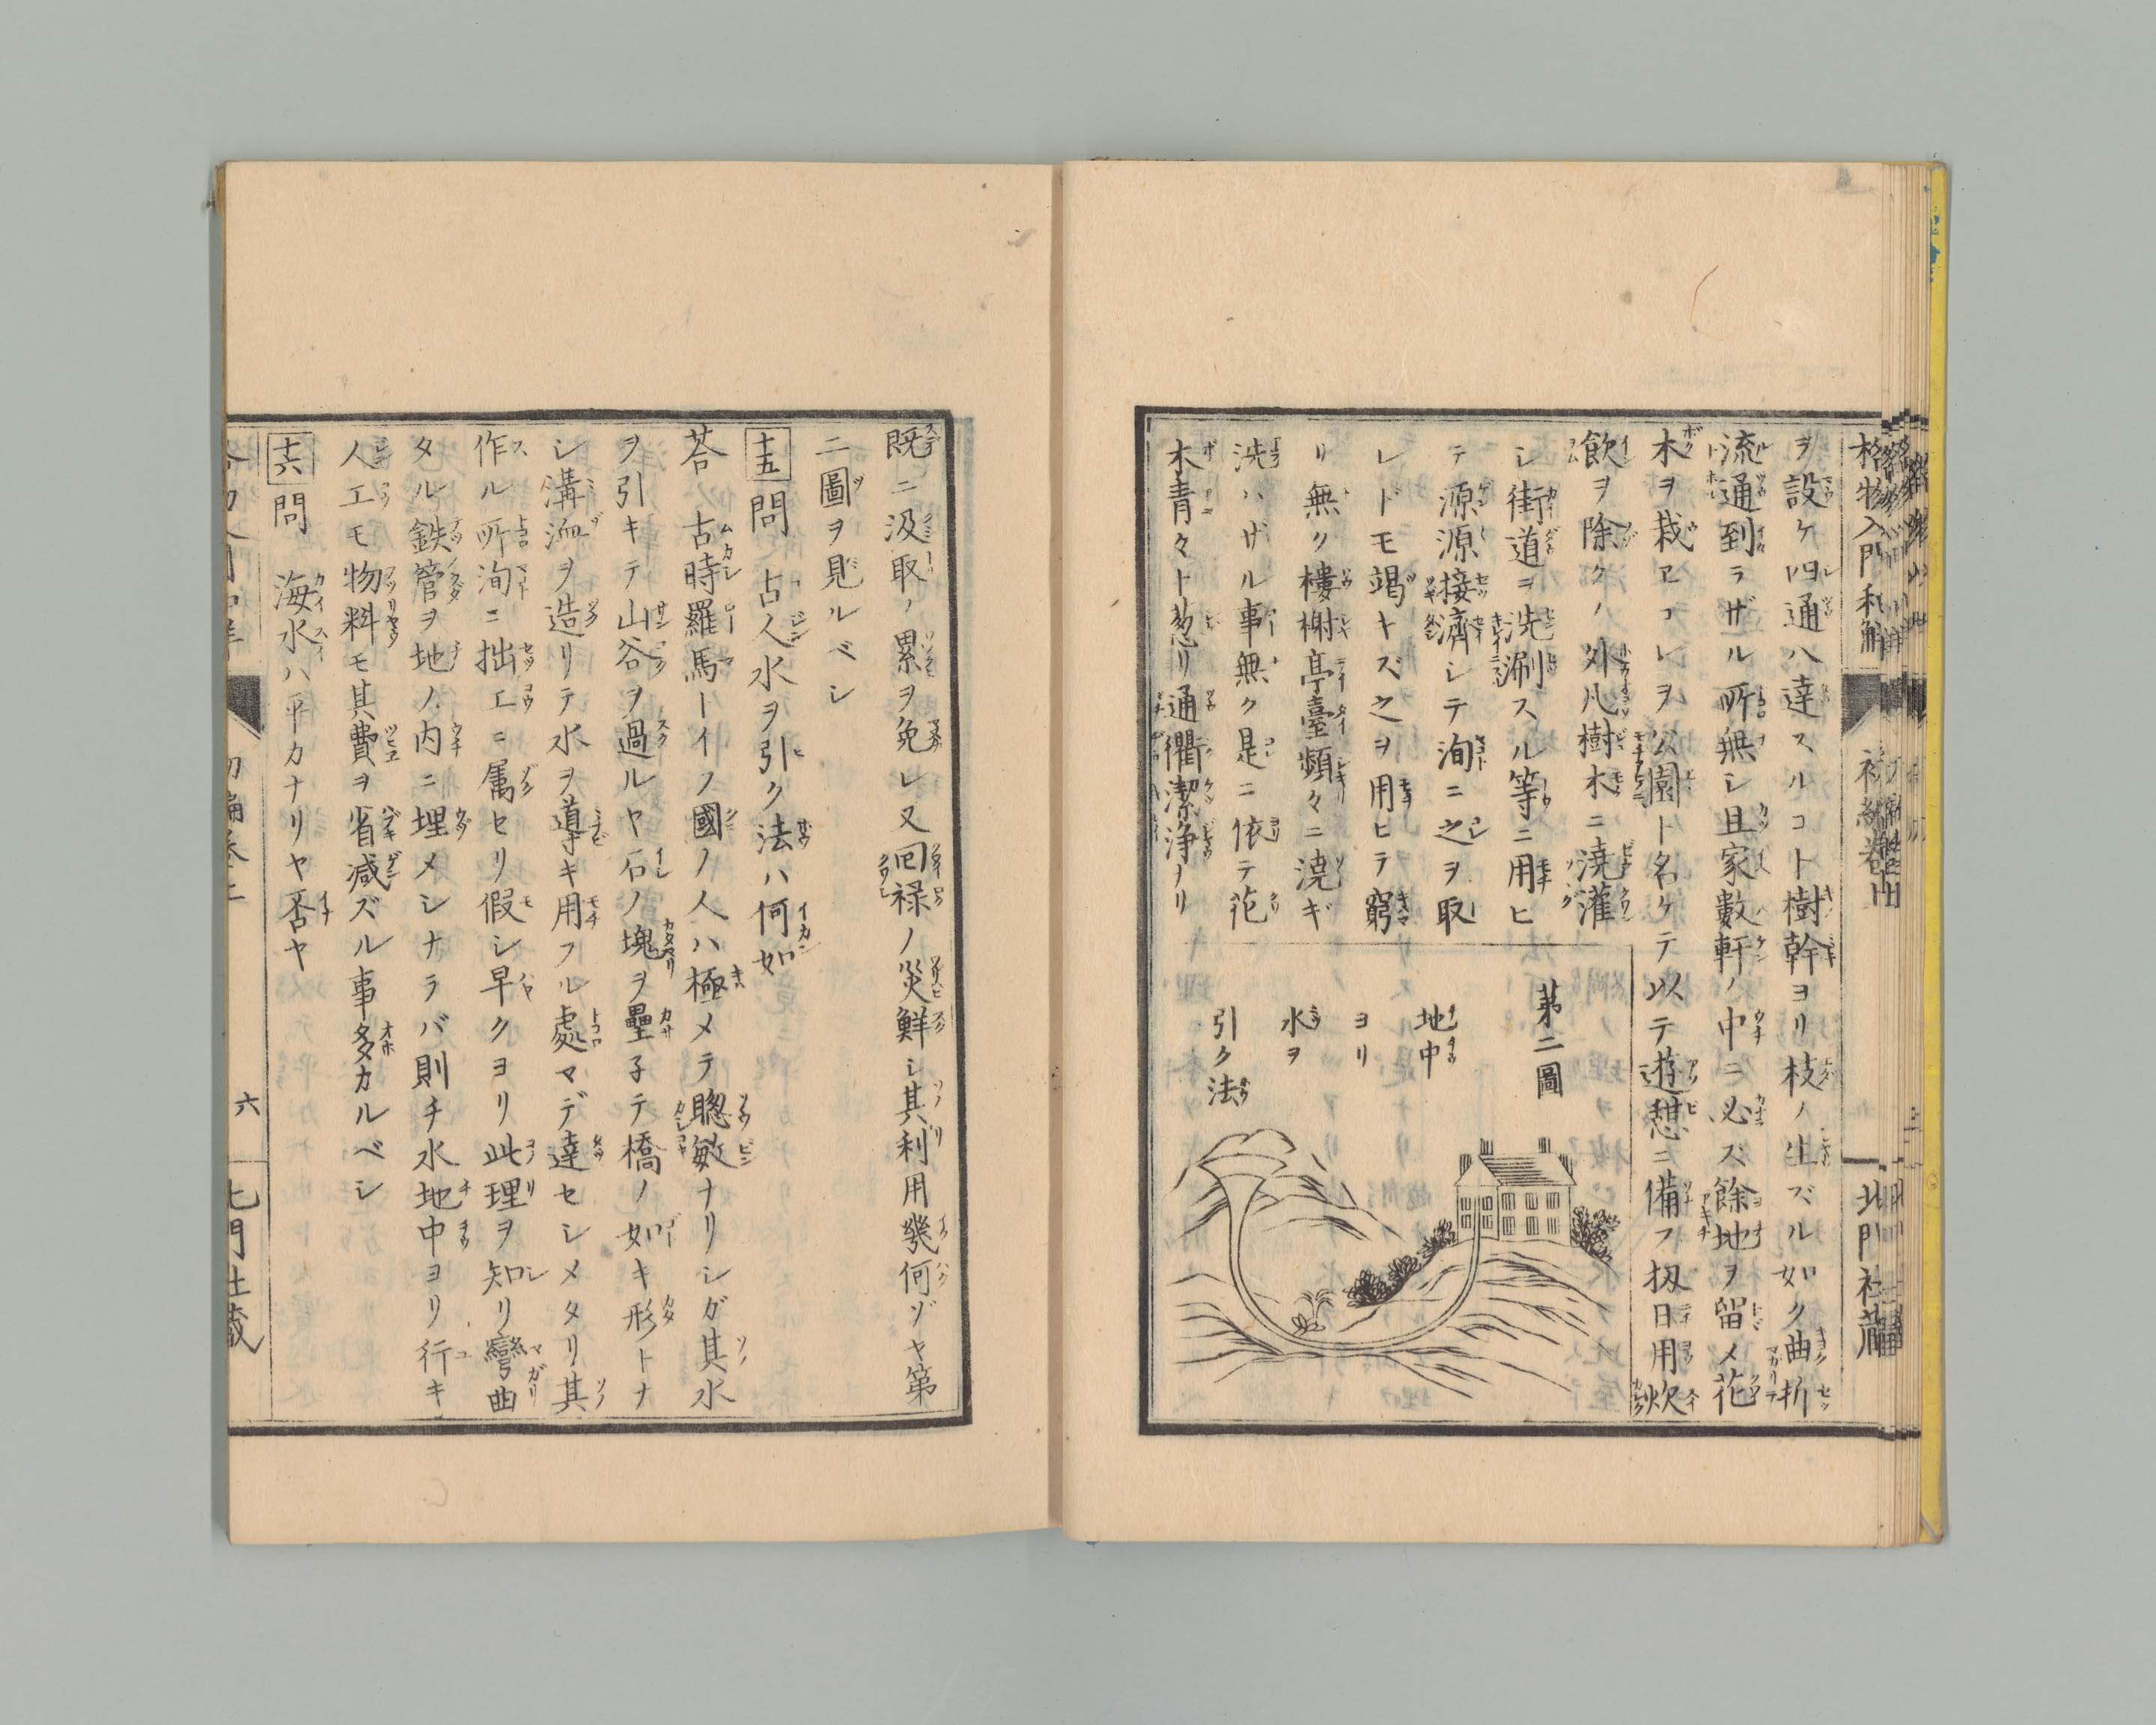 格物入門和解
北門社藏
ヲ設ケ四通八達スルコト樹幹ヨリ枝ノ生ズル如ク曲折
流通到ラザル所無シ且家數軒ノ中ニ必ズ餘地ヲ留メ花
木ヲ栽ヱコレヲ公園ト名ケテ以テ遊憩ニ備フ扨日用炊
飲ヲ除クノ外凡樹木ニ澆灌
シ街道ヲ洗刷スル等ニ用ヒ
テ源源接濟シテ洵ニ之ヲ取
レドモ竭キズ之ヲ用ヒテ窮
リ無ク樓榭亭臺頻々ニ澆ギ
洗ハザル事無ク是ニ依テ花
木青々ト葱リ通衢潔浄ヲリ
第二圖
地中
ヨリ
水ヲ
引ク法
既ニ汲取ノ累ヲ免レ又回禄ノ災鮮シ其利用幾何ゾヤ第
二圖ヲ見ルベシ
十五問 古人水ヲ引ク法ハ何如
荅 古時羅馬ーイフ國ノ人ハ極メテ聰敏ナリシガ其水
ヲ引キテ山谷ヲ過ルヤ石ノ塊ヲ壘子テ橋ノ如キ形トナ
シ溝洫ヲ造リテ水ヲ導キ用フル處マデ達セシメタリ其
作ル所洵ニ拙工ニ属セリ假シ早クヨリ此理ヲ知リ彎曲
タル鉄管ヲ地ノ内ニ埋メシナラバ則チ水地中ヨリ行キ
人工モ物料モ其費ヲ省減ズル事多カルベシ
十六問 海水ハ平カナリヤ否ヤ
六